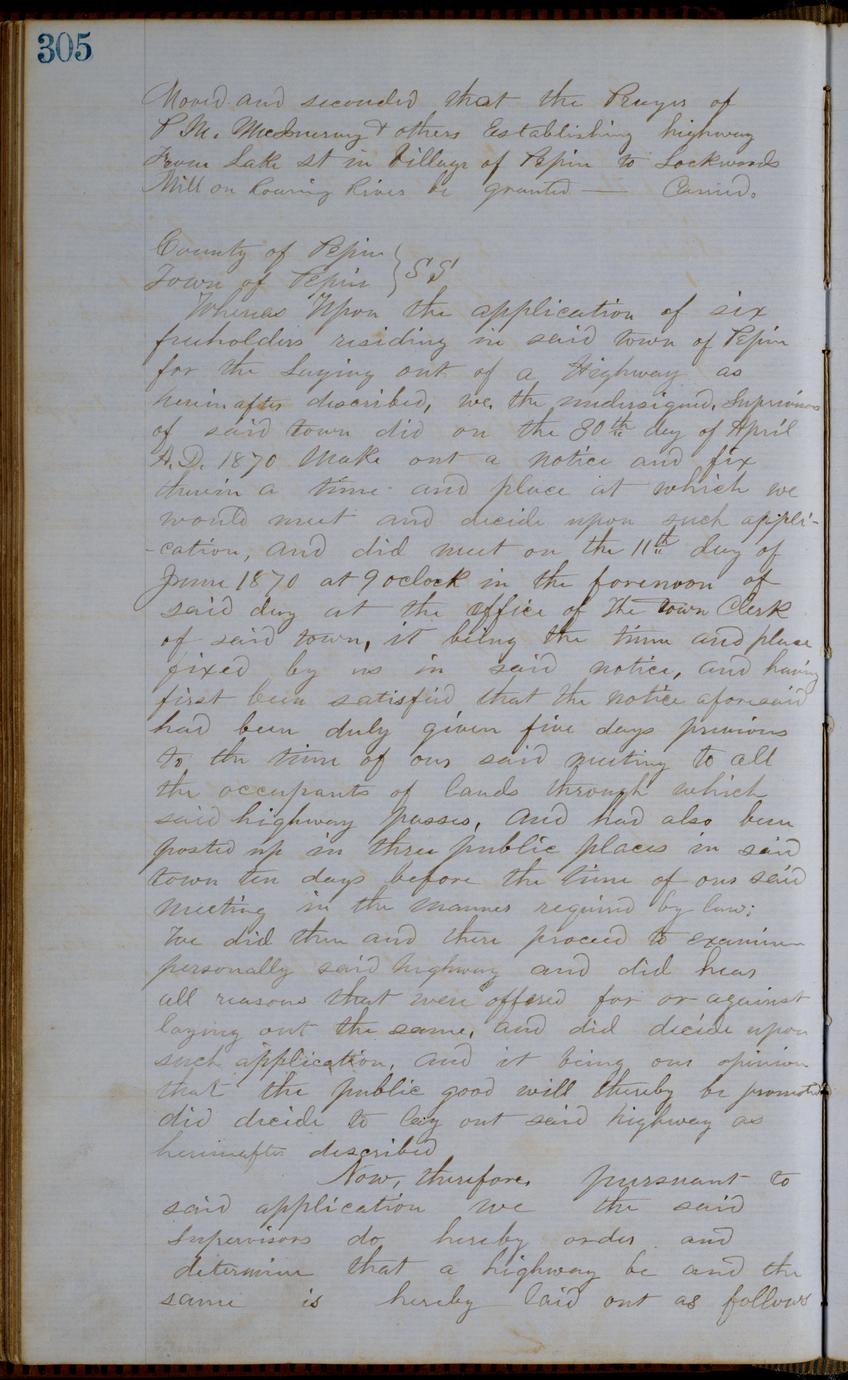 305
Moved and seconded that the Prayer of
P. M. & others Establishing highway
From Lake St in Village of Pepin to Lockwoods
Mill on Roaring River be granted — Carried.
County of Pepin
Town of Pepin } SS
Whereas Upon the application of six
freeholders residing in said town of Pepin
for the Laying out of a Highway as
herinafter described, we, the undersigned, Supervisors
of said town did on the 30th day of April
A.D. 1870 Make out a notice and fix
therein a time and place at which we
would meet and decide upon such appli-
-cation, and did meet on the 11th day of
June 1870 at 9 oclock in the forenoon of
said day at the office of the town Clerk
of said town, it being the time and place
fixed by us in said notice, and having
first been satisfied that the notice aforesaid
had been duly given five days previous
to the time of our said meeting to all
the occupants of lands through which
said highway passes, and had also been
posted up in three public places in said
town ten days before the time of our said
meeting in the manner required by law;
We did then and there proceed to examine
personally said highway and did hear
all reasons that were offered for or against
laying out the same, and did decide upon
such application, and it being our opinion
that the public good will thereby be promoted
did decide to lay out said highway as
hereinafter described
Now, therefore, pursuant to
said application we the said
Supervisors do hereby order and
determine that a highway be and the
same is hereby laid out as follows